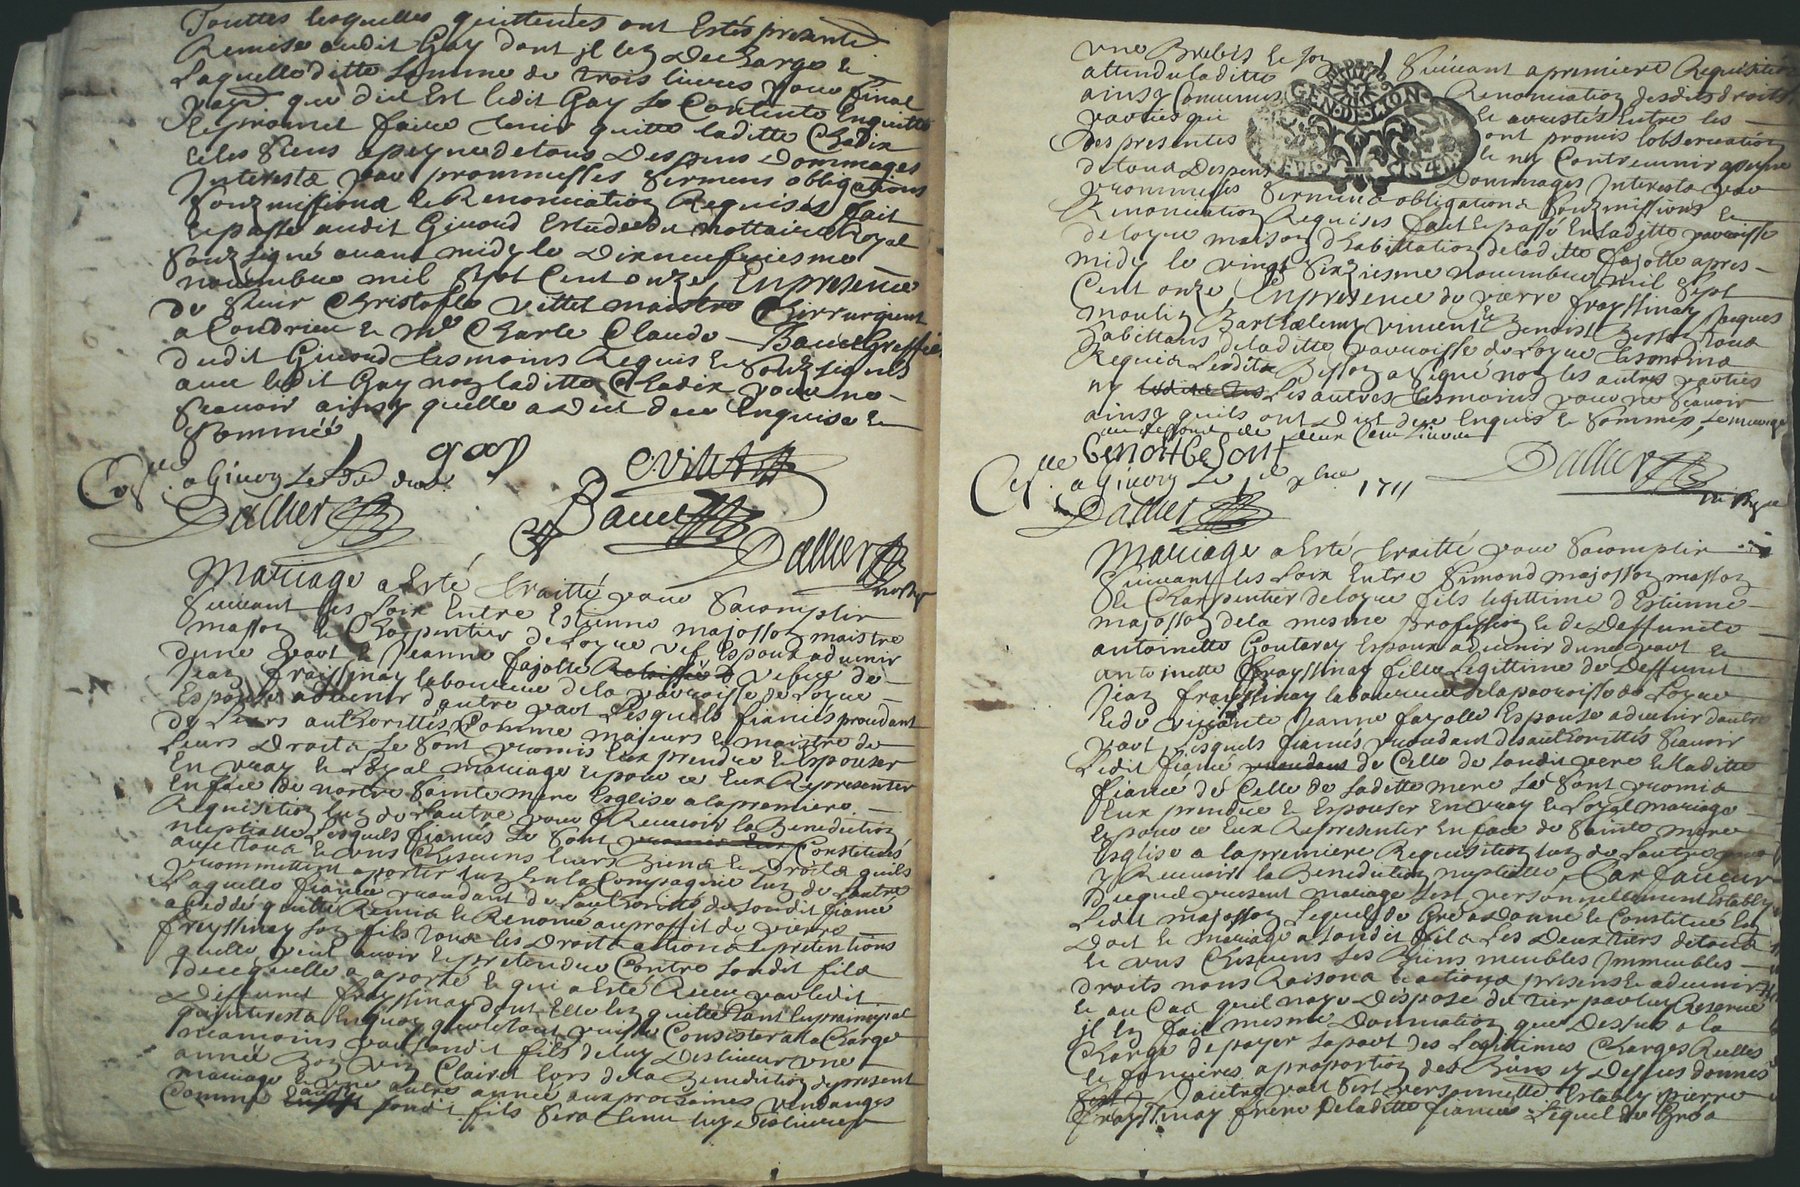 Touttes lesquelles quittences ont Estés presente
Remise audit Gay dont jl les Decharge &
Laquelle ditte somme de trois livres pour final
paye. que dict Est ledit Gay se Contente Enquitte
& promet faire tenir quitte laditte Chadix
& les siens a peyne de tous Despens Dommages
Jnterests par prommesses serment obligations
souzmissions & Renonciation Requises fait
& passe audit Givord Estude du nottaire Royal
souzsigné avant midy le Dixneufviesme
novembre mil sept Cent onze, En presence
de sieur Christofle Vittet maistre Chirrurgient
a Condrieu & me Charle Claude Greffier
dudit Givord tesmoins Requis & souzsignés
avec ledit Gay non laditte Chadix pour ne
scavoir ainsy quelle a dict de ce Enquise &
sommée
gay
C Vittet
a Givors Le
Dallier
Dallier
Mariage a Esté traitté pour sacomplir
suivant les Loix Entre Estienne majosson maistre
masson & Charpentier de Loyre vef Espoux advenir
dune part & Jeanne fajolle vefve de
Jean fraissinay laboureur de la parroisse de Loyre
Espouse advenir dautre part Lesquels fiancés procedant
de Leurs authorittés Comme majeurs & maistre de
Leurs Droits se sont promis Eux prendre & Espouser
En vray & Loyal mariage & pour ce Eux Representer
En face de nortre sainte mere Esglise a la premiere
Requisition lun de Lautre pour y Recevoir la Benediction
nuptialle Lesquels fiancés se sont Constitués
tous & uns Chescuns leurs Biens & Droits quils
promettent aporter lun En la Compagnie lun de lautre
Laquelle fiancée procedant de Lauthoritté de sondit fiancé
a ceddé quitté Remis & Renoncé au proffit de pierre
freyssinay son fils tous les Droits actions & pretentions
quelle peut avoir & pretendre Contre sondit fils
de ce quelle a aporté & qui a Esté Receu par ledit
Deffunct fraissinay dont Elle len quitte tant En principal
quinterests
neamoins par sondit fils de luy Deslivrer une
année Bon vin Clairet lors de la Benediction du present
mariage & une autre année aux prochaines vendanges
Comme aussy sondit fils sera tenu luy Deslivrer
une Brebis
attendu laditte suivant a premiere Requisition
ainsy Convenus Renonciation desdits droits
parties qui & arrestés Entre les
des presentes ont promis lobservation
de tous Despens & ny Contrevenir a peyne
prommesses serment obligations Dommages Jnterests par
Renonciation Requises souzmissions &
fait & passé En laditte parroisse
de Loyre maison dhabittation de laditte fajolle apres
midy le vingt sixiesme novembre mil sept
Cent onze, En presence de pierre frayssinay Jacques
moulin Barthelemy vincent & Benoist Besson tous
habittans de laditte parroisse de Loyre tesmoins
Requis Ledit Besson a signé non les autres parties
ny Les autres tesmoins pour ne scavoir
ainsy quils ont Dict de ce Enquis & sommés,
Benoit Beson
a Givors Le 1711
Dallier
Dallier
GEN. DE LYON
Mariage a Esté traitté pour sacomplir
suivant les Loix Entre simond majosson masson
& Charpentier de Loyre fils legittime d'Estienne
majosson de la mesme proffession & de Deffuncte
antoinette Espoux advenir dune part &
antoinette frayssinay fille Legittime de Deffunct
Jean frayssinay laboureur de la parroisse de Loyre
& de vivante Jeanne fayolle Espouse advenir dautre
part Lesquels fiancés procedant des authorittés scavoir
Ledit fiancé de Celle de sondit pere & laditte
fiancée de Celle de laditte mere se sont promis
Eux prendre & Espouser En vray & Loyal mariage
& pour ce Eux Representer En face de sainte mere
Esglise a la premiere Requisition lun de Lautre pour
y Recevoir la Benediction nuptialle, En faveur
duquel present mariage sest personnellement Estably
Ledit majosson Lequel de gre a Donné & Constitué En
Dot de mariage a sondit fils Les Deux tiers de tous
& uns Chescuns ses Biens meubles Jmmeubles
droits noms Raisons & actions presens & advenir
& au Cas quil naye Disposé du tier par luy Reservé
jl En fait mesme Donnation que Dessus a la
Charge de payer sa part des Legittimes Charges Reelles
& foncieres a proportion des Biens cy Dessus donnés
Dautre part sest personnelle Estably pierre
frayssinay frere de laditte fiancée Lequel de gre a